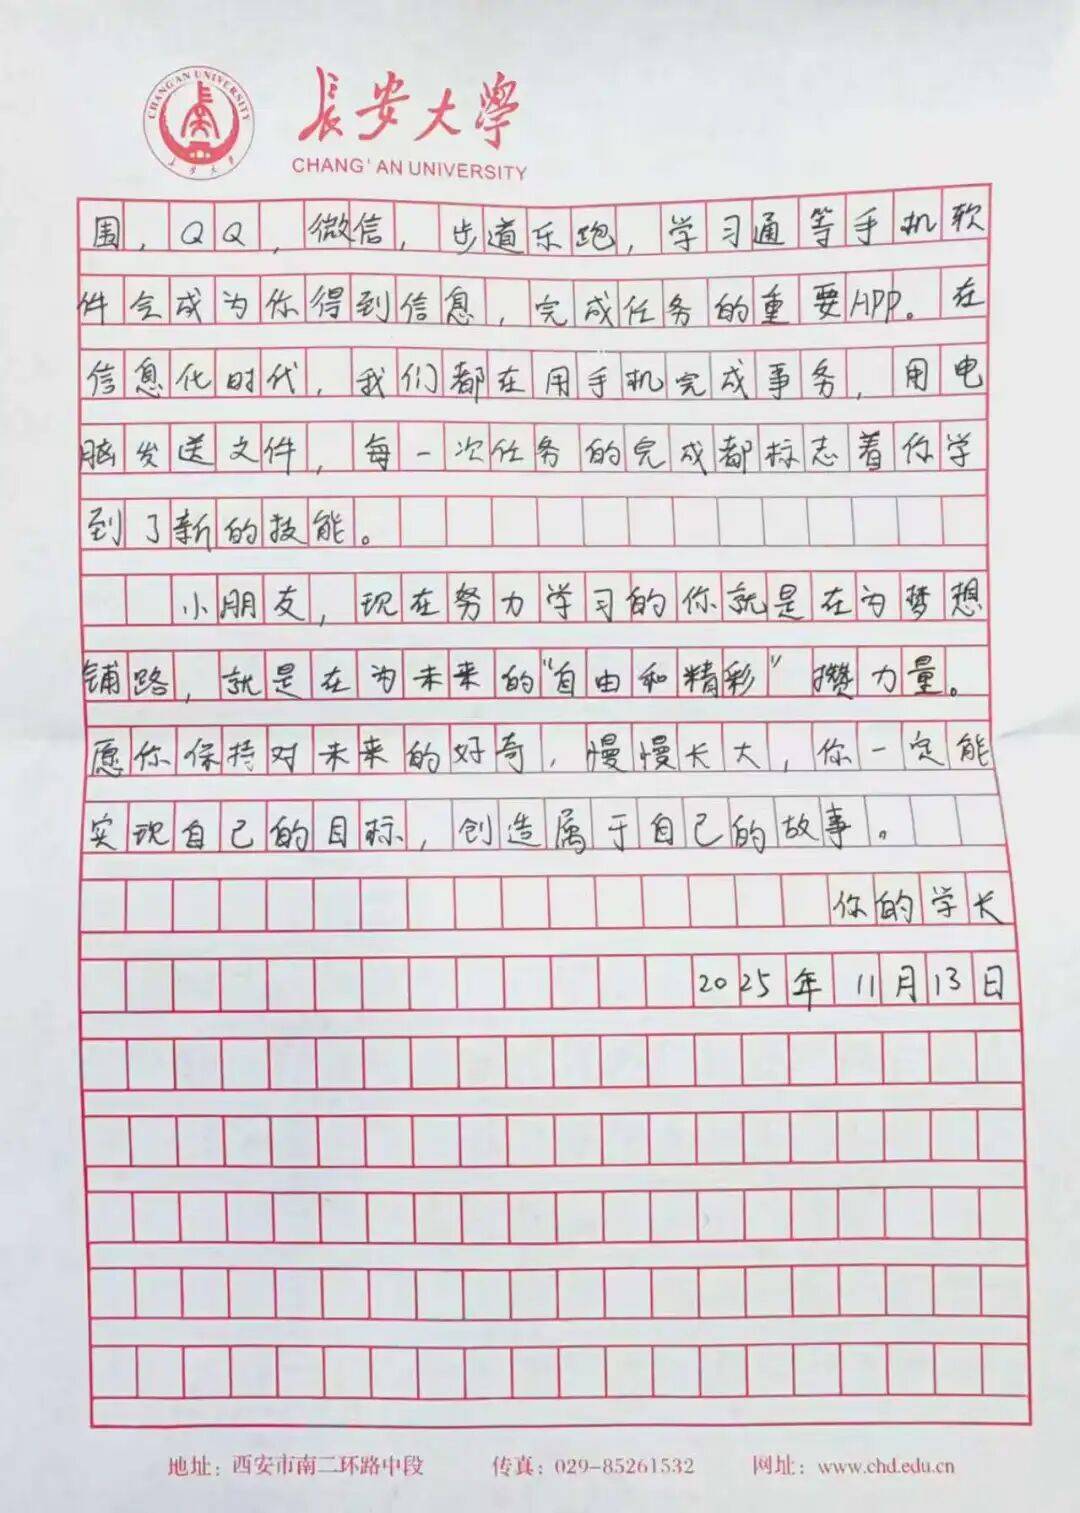 CHANG'AN UNIVERSITY
长安大学
长安大学
CHANG'AN UNIVERSITY
围，QQ，微信，步道乐跑，学习通等手机软
件会成为你得到信息，完成任务的重要APP。在
信息化时代，我们都在用手机完成事务，用电
脑发送文件，每一次任务的完成都标志着你学
到了新的技能。
小朋友，现在努力学习的你就是在为梦想
铺路，就是在为未来的“自由和精彩”攒力量。
愿你保持对未来的好奇，慢慢长大，你一定能
实现自己的目标，创造属于自己的故事。
你的学长
2025年11月13日
地址：西安市南二环路中段 传真：029-85261532 网址：www.chd.edu.cn